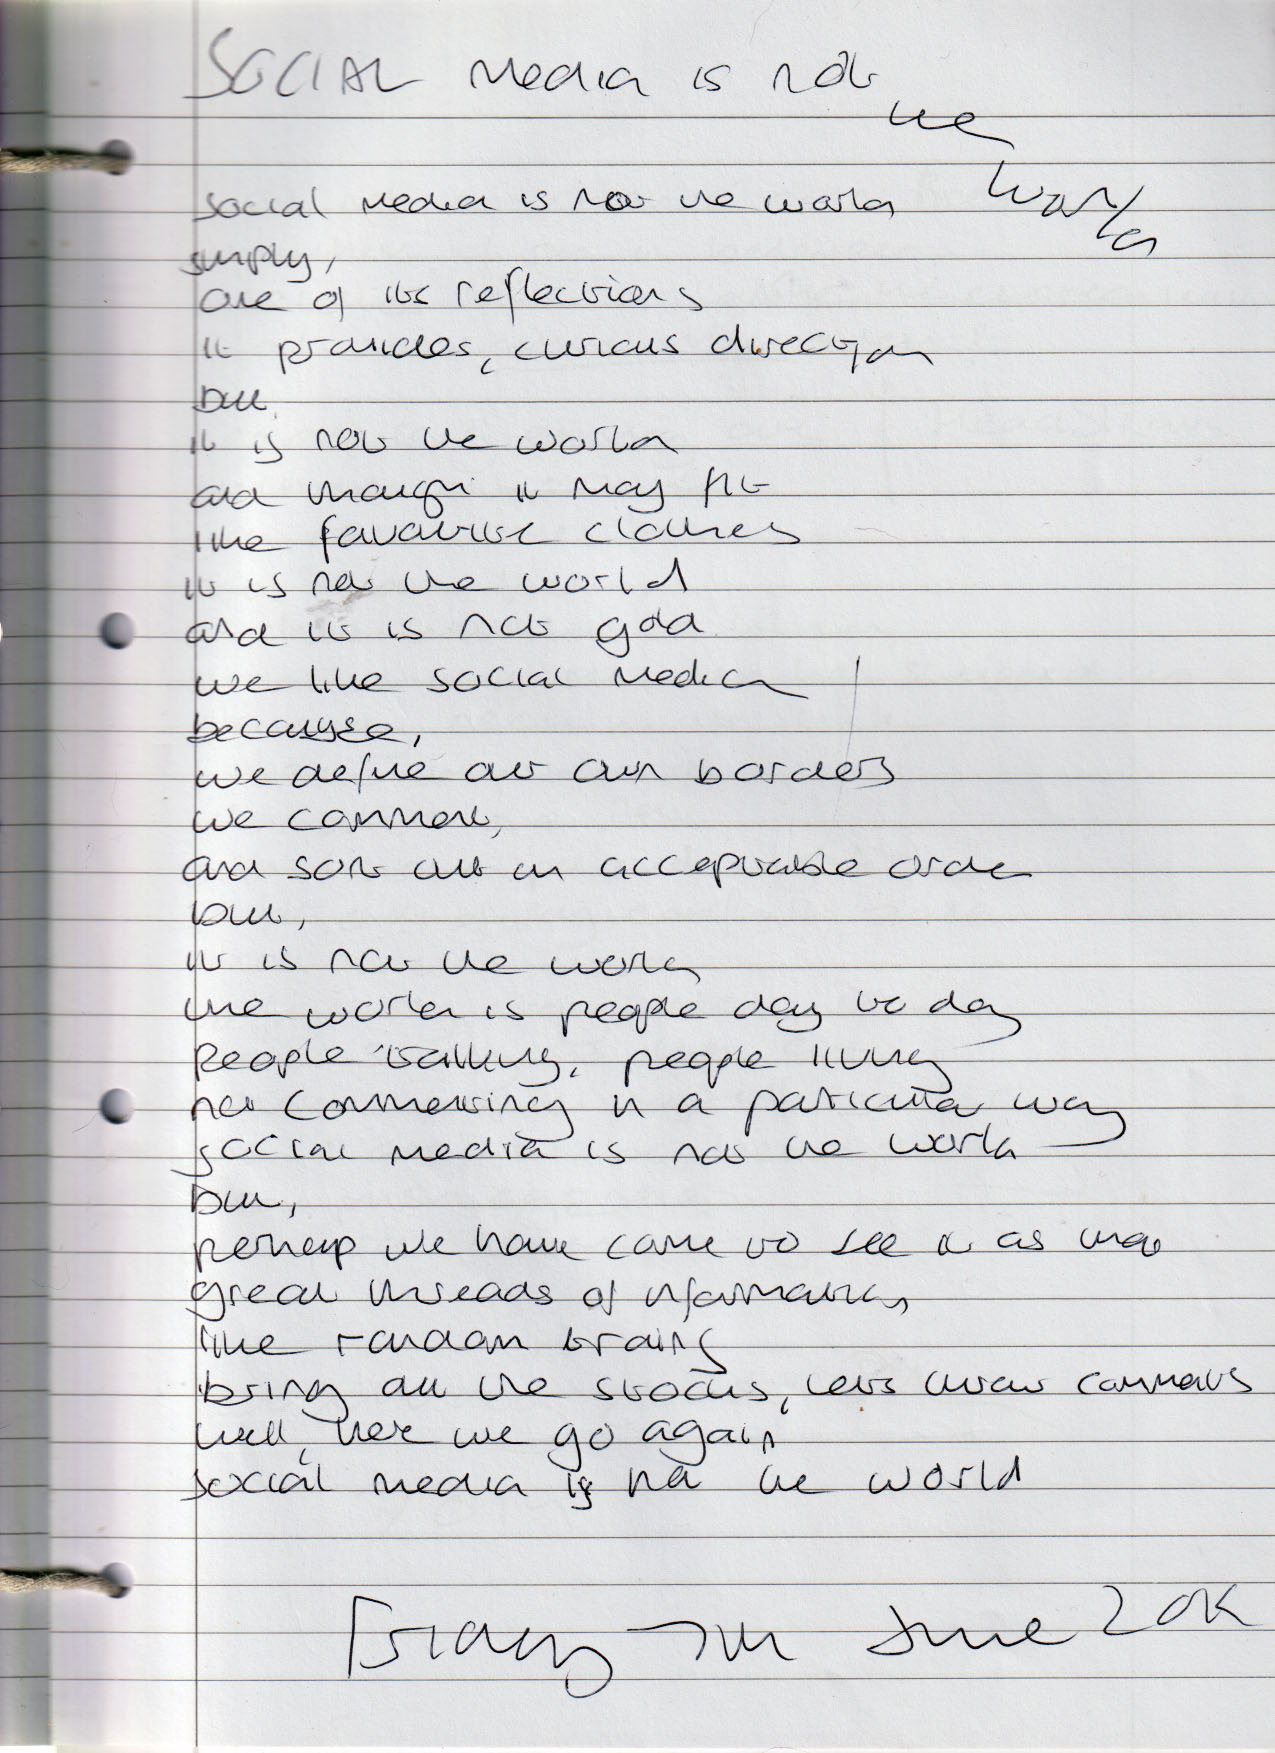 SOCIAL media is not
the
world
social media is not the world
simply,
one of its reflections
it provides, curious direction
but
it is not the world
and though it may fit
like favourite clothes
it is not the world
and it is not gold
we like social media
because,
we define our own borders
we comment,
and sort out an acceptable order
but,
it is not the world
the world is people day to day
people talking, people living
not commenting in a particular way
social media is not the world
but,
perhap we have come to see it as that
great threads of information
like random trains
bring all the stocks, lets throw comments
well, here we go again
social media is not the world
Friday 7th June